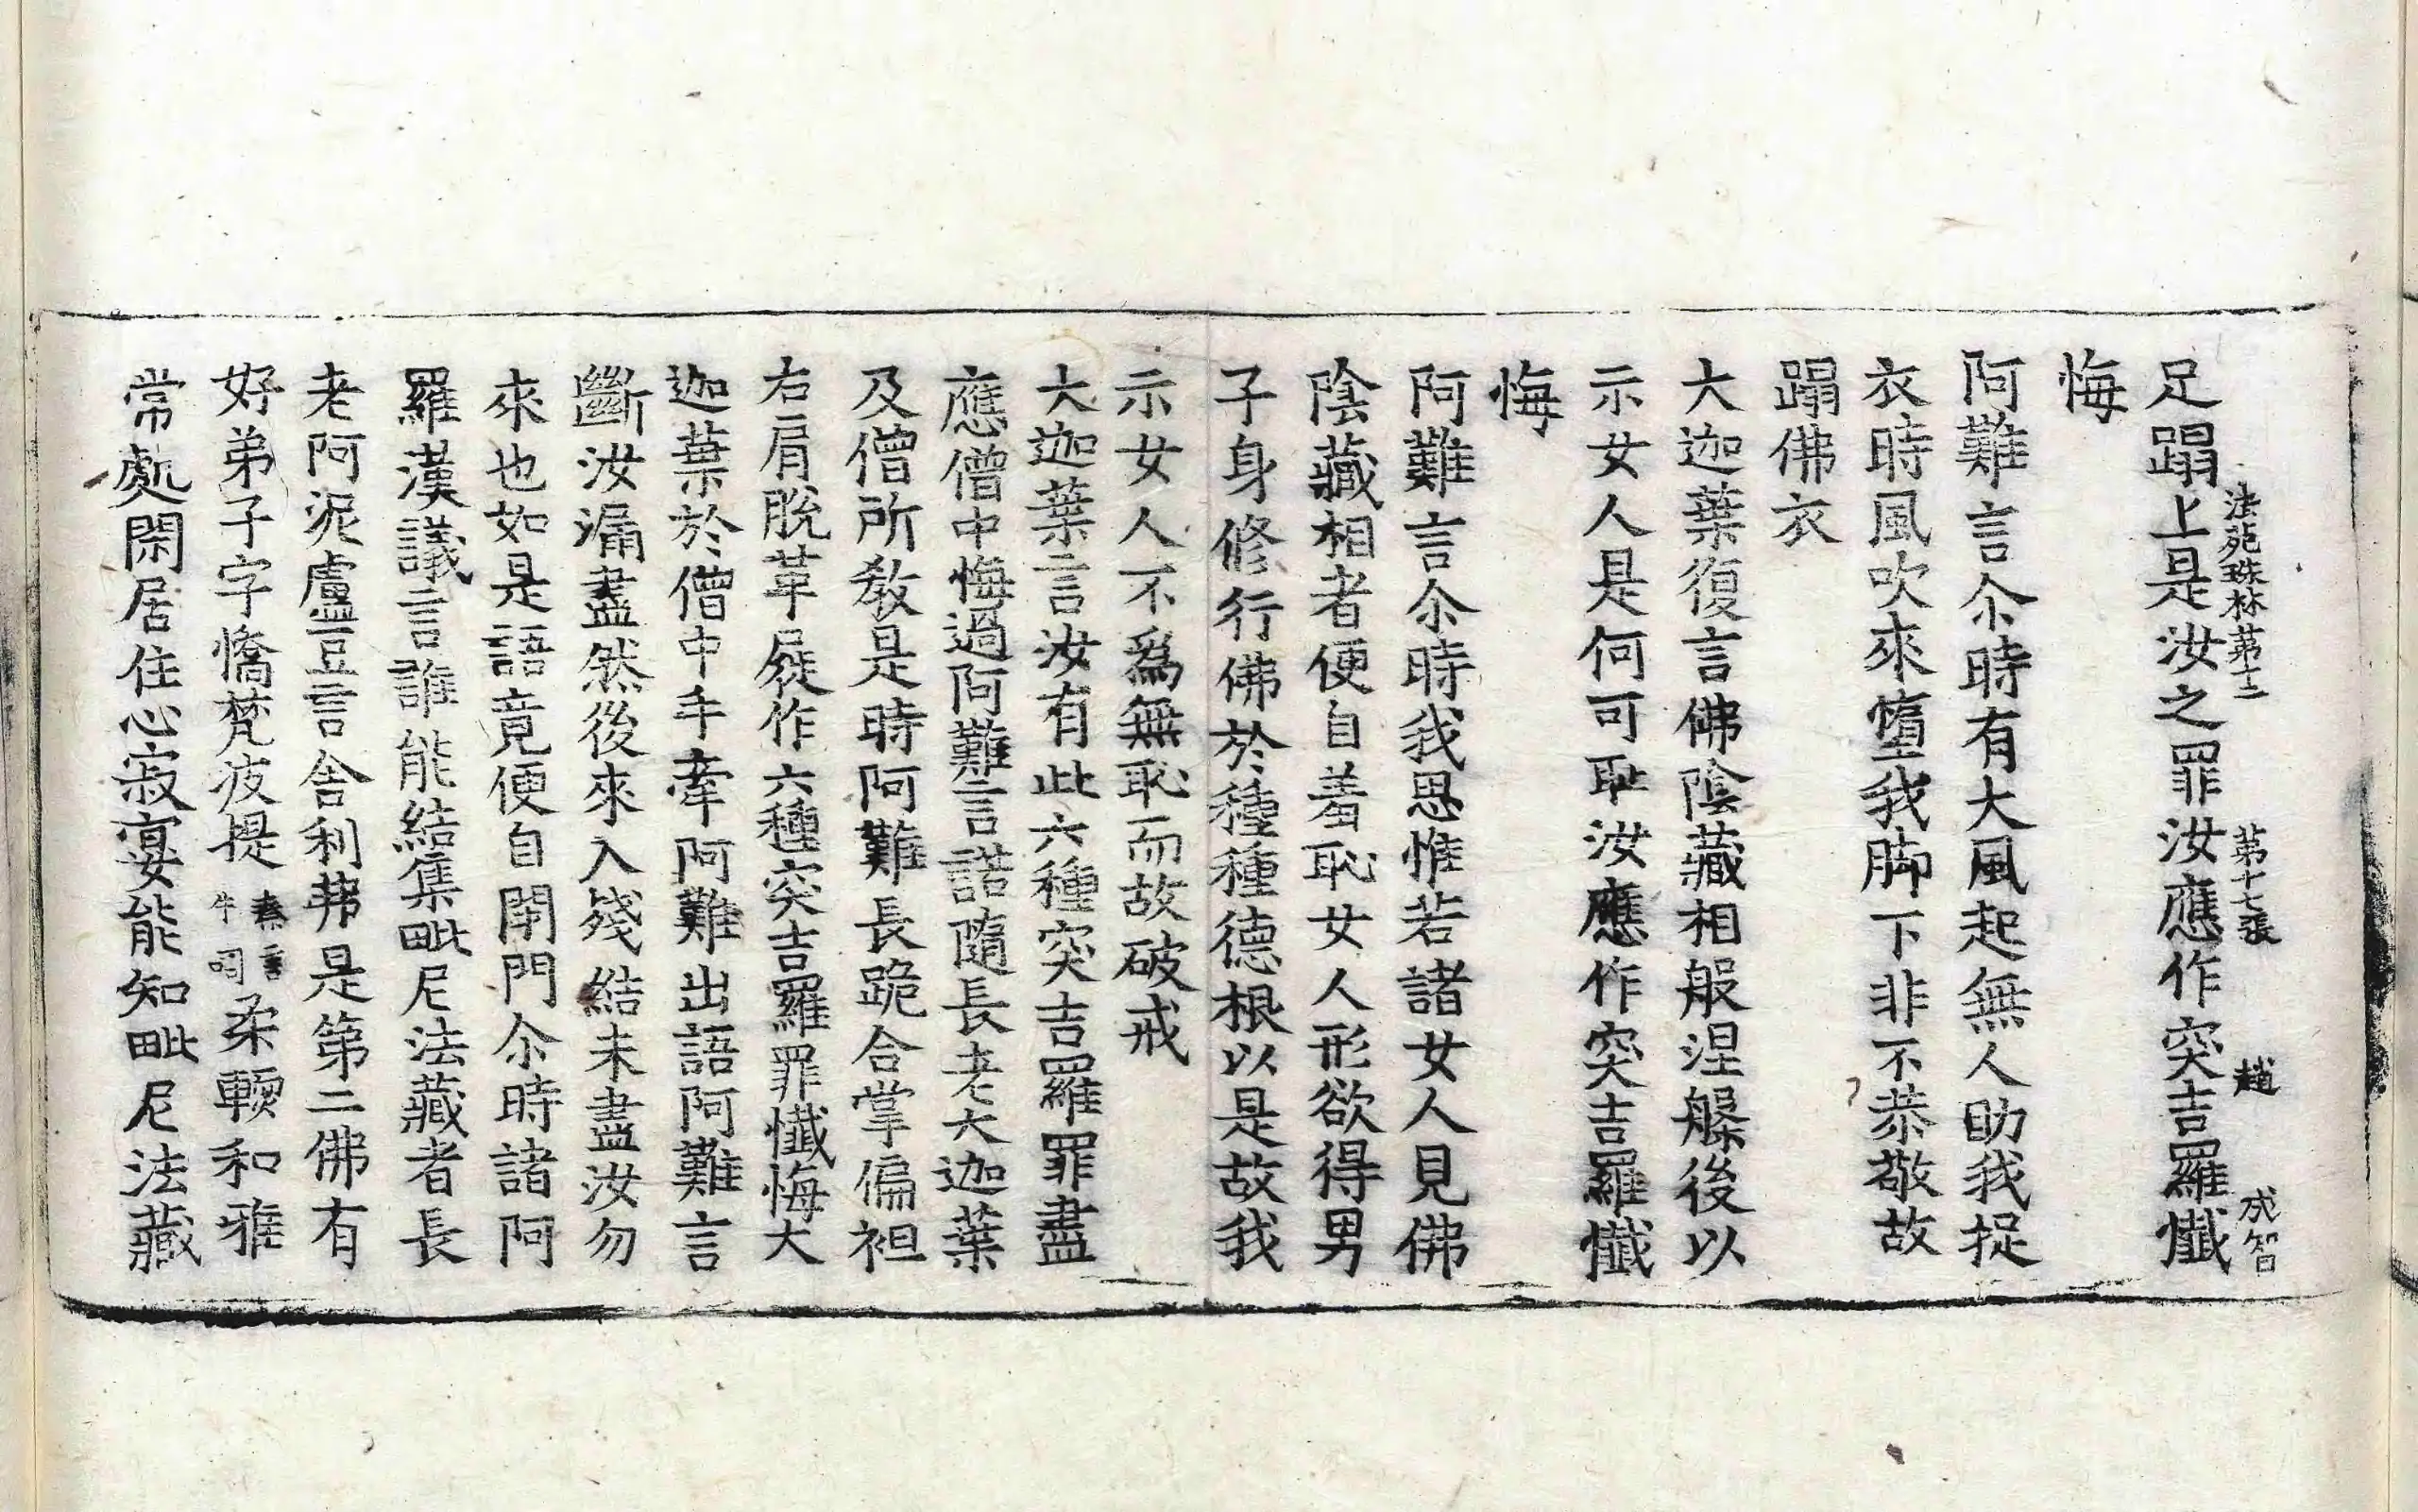 法苑珠林苐十二　苐十七張　趙　成智
足蹋上是汝之罪汝應作突吉羅懺
悔
阿難言尒時有大風起無人助我捉
衣時風吹來墮我脚下非不恭敬故
蹋佛衣
大迦葉復言佛陰藏相般涅槃後以
示女人是何可耻汝應作突吉羅懺
悔
阿難言尒時我思惟若諸女人見佛
陰藏相者便自羞恥女人形欲得男
子身修行佛於種種德根以是故我
示女人不爲無恥而故破戒
大迦葉言汝有此六種突吉羅罪盡
應僧中悔過阿難言諾隨長老大迦葉
及僧所敎是時阿難長跪合掌偏袒
右肩脫革屣作六種突吉羅罪懺悔大
迦葉於僧中手牽阿難出語阿難言
斷汝漏盡然後來入殘結未盡汝勿
來也如是語竟便自閇門尒時諸阿
羅漢議言誰能結集毗尼法藏者長
老阿泥盧豆言舍利弗是第二佛有
好弟子字憍梵波提秦言牛呞柔輭和雅
常處閑居住心寂宴能知毗尼法藏